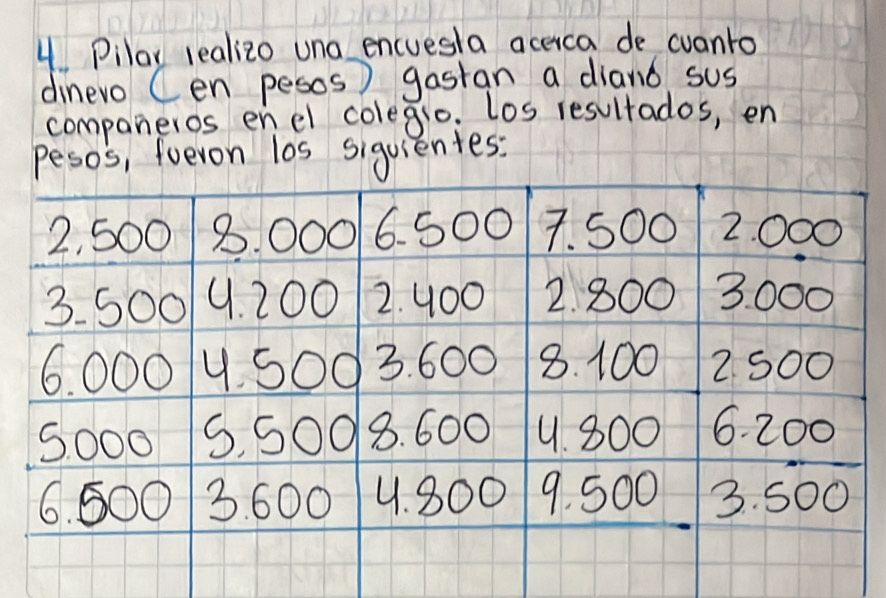 4. Pilar realizo una encuesta acerca de cuanto
dinero (en pesos) gastan a diario sus
compañeros en el colegio. Los resultados, en
pesos, fueron los siguientes:
2.500 8.000 6.500 7.500 2.000
3.500 4.200 2.400 2.800 3.000
6.000 4.500 3.600 8.100 2.500
5.000 5.500 8.600 4.800 6.200
6.500 3.600 4.800 9.500 3.500